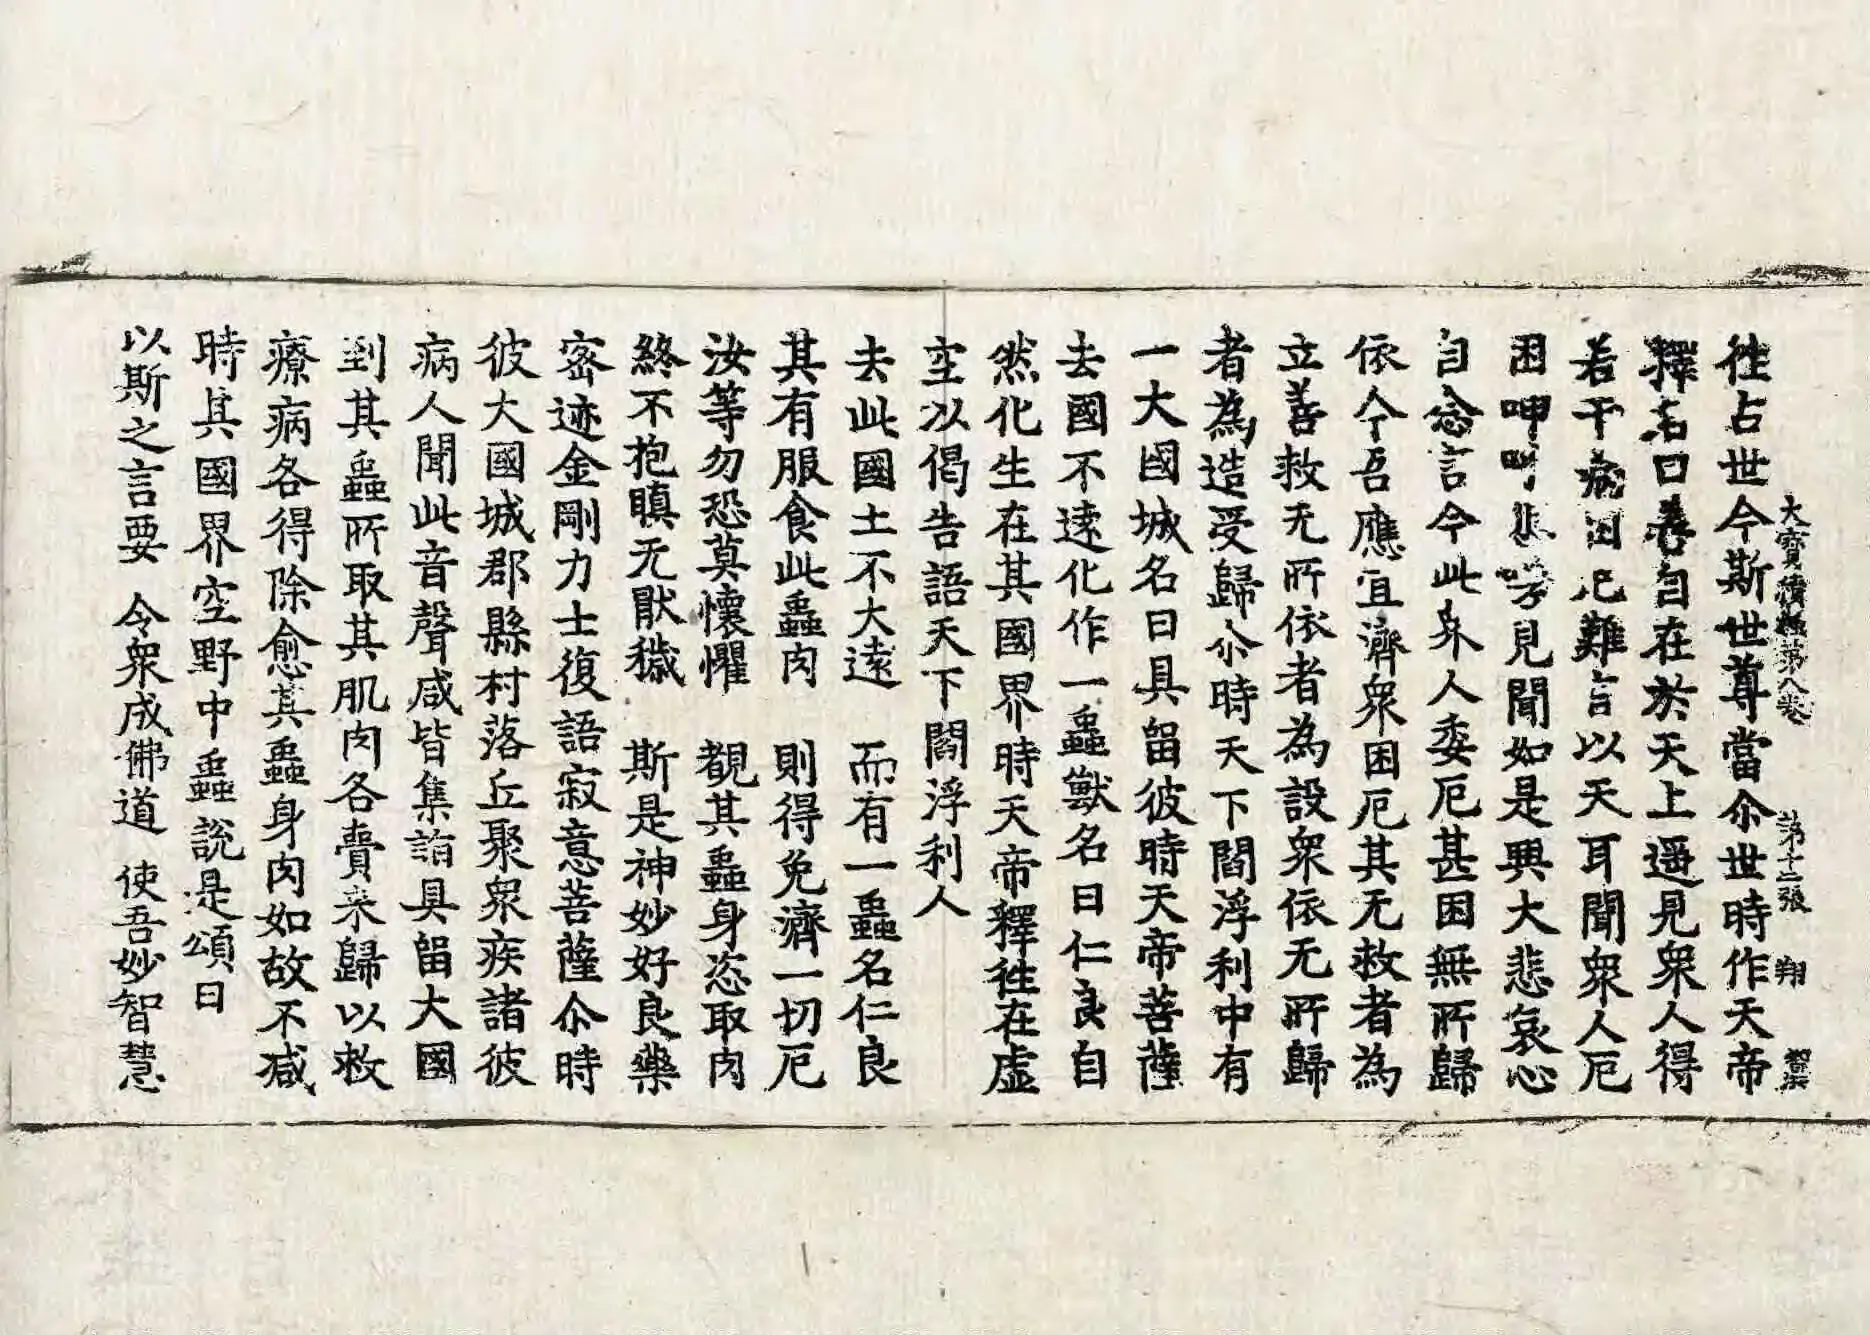 大寳積經第八卷 第十二張 翔
往古世今斯世尊當尒世時作天帝
釋名曰善自在於天上遥見衆人得
若干病困厄難言以天耳聞衆人厄
困呻呼悲哭見聞如是興大悲哀心
自念言今此豸人委厄甚困無所歸
依今吾應宜濟衆困厄其无救者為
立善救无所依者為設衆依无所歸
者為造受歸尒時天下閻浮利中有
一大國城名曰具留彼時天帝菩薩
去國不遠化作一蟲獸名曰仁良自
然化生在其國界時天帝釋往在虛
空以偈告語天下閻浮利人
去此國土不大遠 而有一蟲名仁良
其有服食此蟲肉 則得免濟一切厄
汝等勿恐莫懷懼 覩其蟲身恣取肉
終不抱瞋无猒穢 斯是神妙好良藥
密迹金剛力士復語寂意菩薩尒時
彼大國城郡縣村落丘聚衆疾諸彼
病人聞此音聲咸皆集詣具留大國
到其蟲所取其肌肉各賷来歸以救
療病各得除愈其蟲身肉如故不減
時其國界空野中蟲說是頌曰
以斯之言要 令衆成佛道 使吾妙智慧